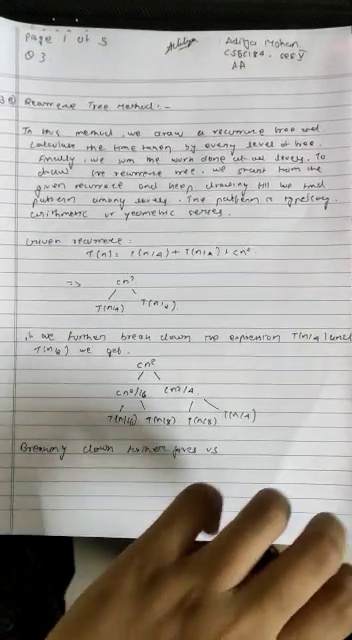 Page 1 of 5
Q 3
Aditya Mohan
CSE
AA
Recurrence Tree Method : -
In this method, we draw a recurrence tree and
calculate the time taken by every level of tree.
Finally, we sum the work done at all levels. To
draw the recurrence tree, we start from the
given recurrence and keep drawing till we find
pattern among levels. The pattern is typically
arithmetic or geometric series.
Given recurrence :
T(n) = T(n/4) + T(n/2) + cn²
=> cn²
T(n/4) T(n/2)
if we further break down the expression T(n/4) and
T(n/2) we get.
cn²
cn²/16 cn²/4
T(n/16) T(n/8) T(n/8) T(n/4)
Breaking down further gives us